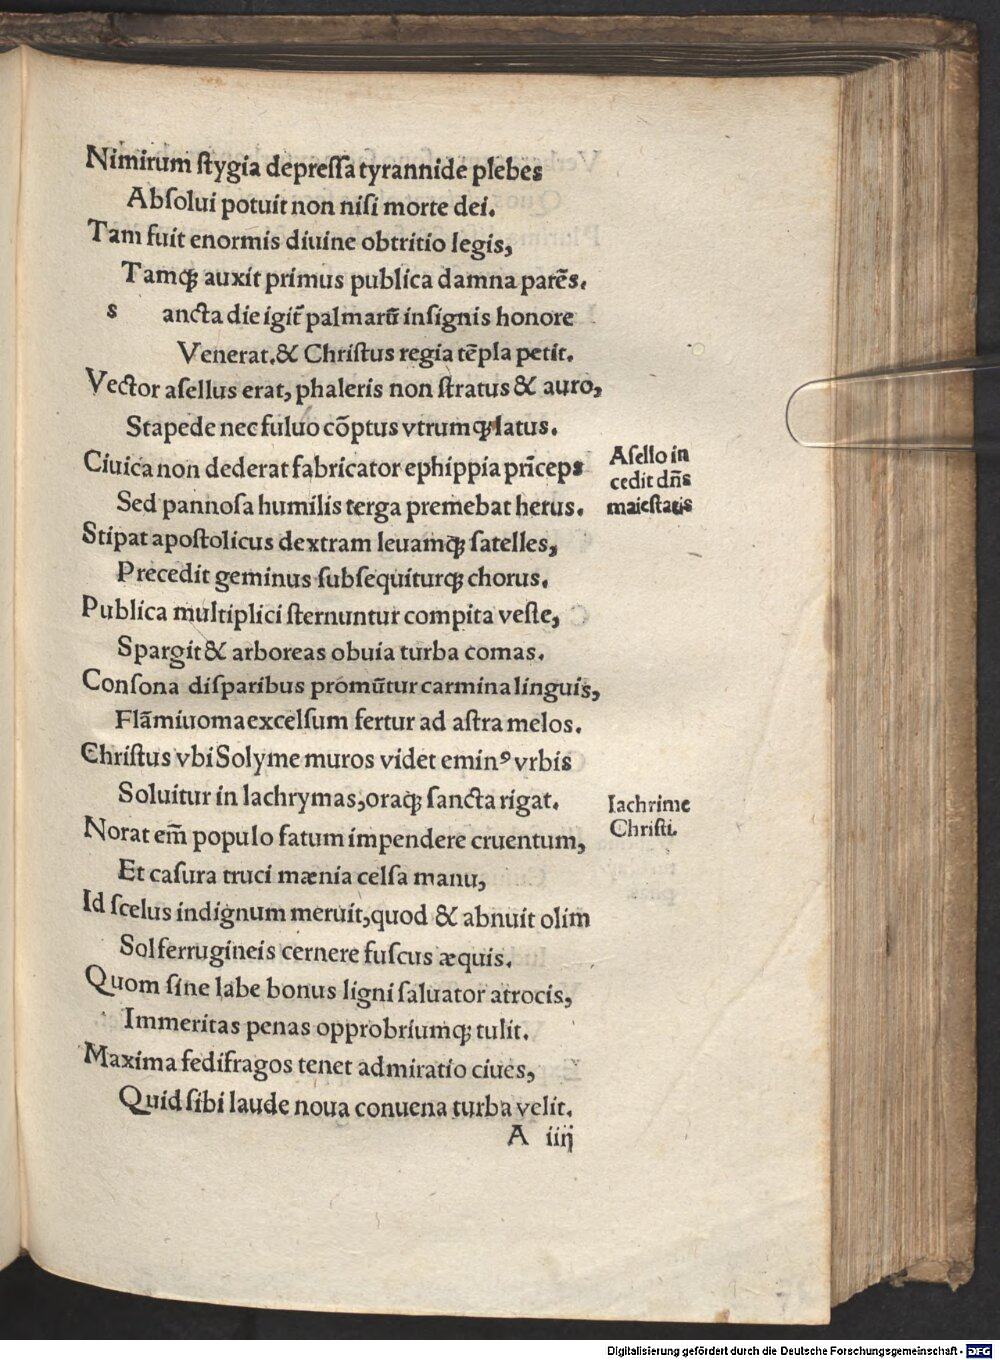 Nimirum ſtygia depreſſa tyrannide plebes
Abſolui potuit non niſi morte dei.
Tam fuit enormis diuine obtritio legis,
Tamqꝫ auxit primus publica damna parēs.
s ancta die igit̄ palmarū inſignis honore
Venerat.& Chriſtus regia tēpla petit.
Vector aſellus erat, phaleris non ſtratus & auro,
Stapede nec fuluo cōptus vtrumqꝫ latus.
Ciuica non dederat fabricator ephippia prīceps
Sed pannoſa humilis terga premebat herus.
Aſello in
cedit dn̄s
maieſtatis
Stipat apoſtolicus dextram leuamqꝫ ſatelles,
Precedit geminus ſubſequiturqꝫ chorus.
Publica multiplici ſternuntur compita veſte,
Spargit & arboreas obuia turba comas.
Conſona diſparibus promūtur carmina linguis,
Flāmiuoma excelſum fertur ad aſtra melos.
Chriſtus vbi Solyme muros videt eminꝰ vrbis
Soluitur in lachrymas,oraqꝫ ſancta rigat.
lachrime
Chriſti.
Norat em̄ populo fatum impendere cruentum,
Et caſura truci mænia celſa manu,
Id ſcelus indignum meruit,quod & abnuit olim
Sol ferrugineis cernere fuſcus æquis.
Quom ſine labe bonus ligni ſaluator atrocis,
Immeritas penas opprobriumqꝫ tulit.
Maxima fedifragos tenet admiratio ciues,
Quid ſibi laude noua conuena turba velit.
A iiij
Digitalisierung gefördert durch die Deutsche Forschungsgemeinschaft - DFG